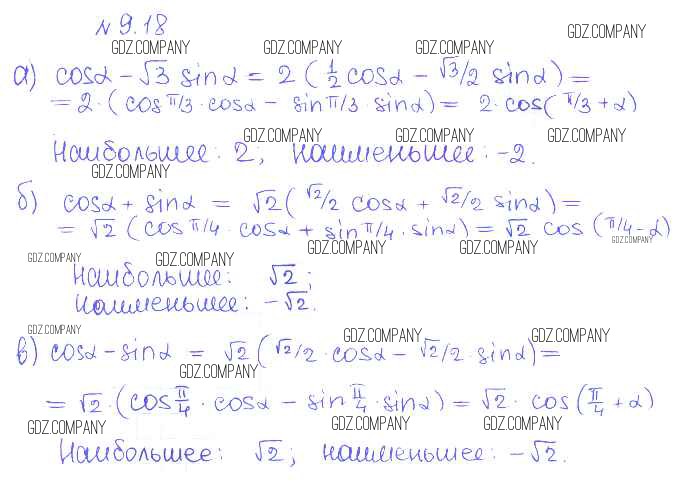 № 9.18
GDZ.COMPANY
GDZ.COMPANY GDZ.COMPANY GDZ.COMPANY
а) cosα - √3 sinα = 2 (1/2 cosα - √3/2 sinα) =
= 2·(cos π/3 · cosα - sin π/3 · sinα) = 2·cos(π/3 + α)
GDZ.COMPANY GDZ.COMPANY GDZ.COMPANY
Наибольшее: 2; наименьшее: -2.
GDZ.COMPANY
б) cosα + sinα = √2(√2/2 cosα + √2/2 sinα) =
= √2 (cos π/4 · cosα + sin π/4 · sinα) = √2 cos (π/4 - α)
GDZ.COMPANY
GDZ.COMPANY GDZ.COMPANY GDZ.COMPANY GDZ.COMPANY
Наибольшее: √2;
наименьшее: -√2.
GDZ.COMPANY GDZ.COMPANY GDZ.COMPANY
в) cosα - sinα = √2 (√2/2 · cosα - √2/2 · sinα) =
GDZ.COMPANY
= √2 · (cos π/4 · cosα - sin π/4 · sinα) = √2 · cos (π/4 + α)
GDZ.COMPANY GDZ.COMPANY GDZ.COMPANY
Наибольшее: √2; наименьшее: -√2.